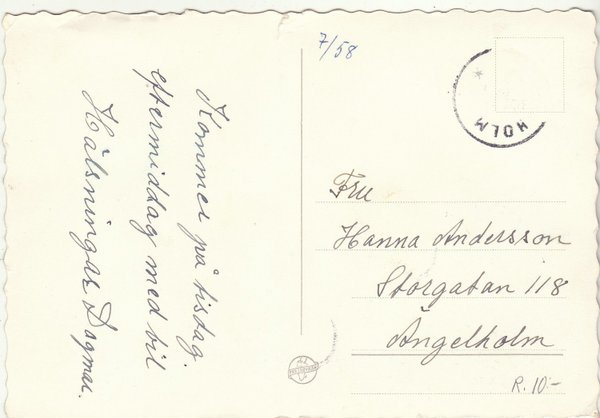 Kommer på tisdag.
eftermiddag med bil
Hälsningar Dagmar.
7/58
HOLM
Fru
Hanna Andersson
Storgatan 118
Ängelholm
R. 10:-